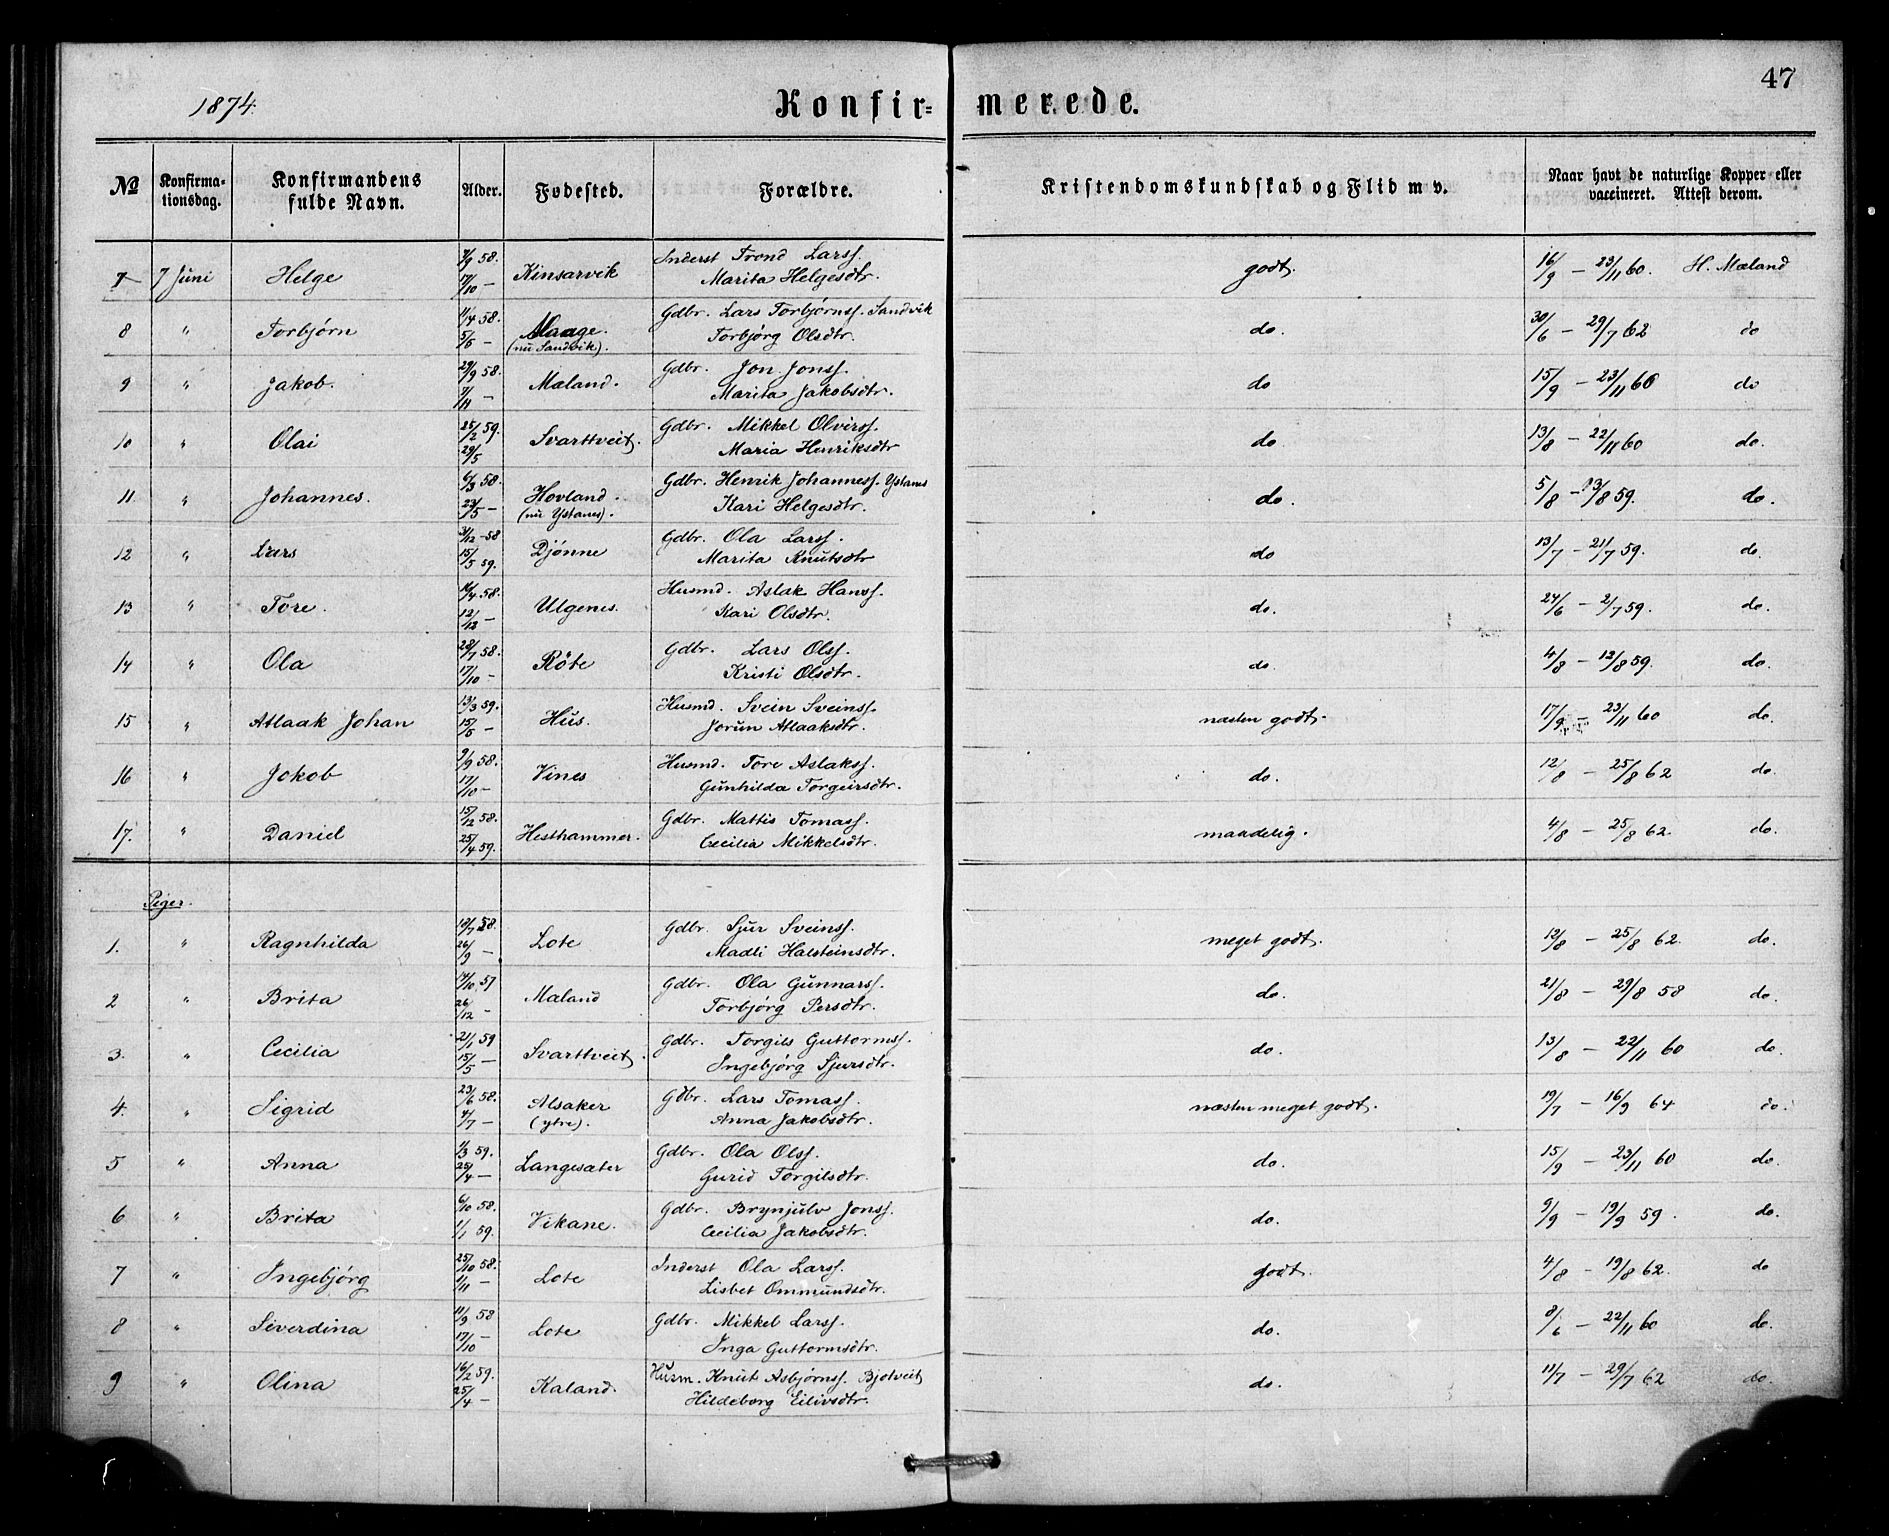 1874. Konfir= merede. 47
No Konfirma-tionsdag. Konfirmandens fulde Navn. Alder. Fodested. Forældre. Kristendomskundskab og Flid m v. Naar havt de naturlige Kopper eller vaccineret. Attest derom.
7 7 Juni Helge 7/9 58. 17/10 — Kinsarvik Inderst Trond Larss. godt. 16/9 — 23/11 60. H. Mæland
Marita Helgesdtr.
8 " Torbjørn 11/4 58. 5/6 — Maage. (nu Sandvik). Gdbr. Lars Torbjørnss. Sandvik do. 30/6 — 29/7 62 do
Torbjørg Olsdtr.
9 " Jakob. 29/9 58. 7/11 — Mæland. Gdbr. Jon Jonss. do 15/9 — 23/11 60 do
Marita Jakobsdtr.
10 " Olai 25/2 59. 29/5 Svarttveit. Gdbr. Mikkel Olvirss. do 13/8 — 22/11 60 do.
Maria Henriksdtr
11. " Johannes. 6/3 58. 23/5 — Hovland. (nu Ystanes). Gdbr. Henrik Johanness. Ystanes do. 5/8 — 13/8 59. do.
Kari Helgesdtr.
12 " Lars 31/12 58 15/5 59. Djønne Gdbr. Ola Larss. do 13/7 — 21/7 59. do.
Marita Knutsdtr
13 " Tore. 16/4 58. 12/12 — Ulgenes. Husmd. Aslak Hanss. do. 24/6 — 2/7 59. do.
Kari Olsdtr.
14 " Ola 28/7 58. 17/10 — Røte Gdbr. Lars Olss. do. 4/8 — 12/8 59. do.
Kristi Olsdtr.
15 " Atlaak Johan 13/3 59. 15/5 — Hus. Husmd. Svein Sveinss. næsten godt. 17/9 — 23/11 60 do.
Jorun Atlaaksdtr.
16 " Jokob 9/9 58. 17/10 — Vines Husmd. Tore Aslakss. do. 12/8 — 25/8 62 do.
Gunhilda Torgeirsdtr.
17. " Daniel 15/12 58. 25/4 59. Hesthammer. Gdbr. Mattis Tomass. maadelig. 4/8 — 25/8 62. do.
Cecilia Mikkelsdtr.
Piger.
1. " Ragnhilda 18/7 58. 26/9 — Lote Gdbr. Sjur Sveinss. meget godt. 12/8 — 25/8 62. do.
Madli Halsteinsdtr.
2 " Brita 14/10 57 26/12 — Mæland Gdbr. Ola Gunnarss. do. 21/8 — 29/8 58 do.
Torbjørg Persdtr.
3. " Cecilia 21/1 59 15/5 — Svarttveit. Gdbr. Torgils Guttormss. do. 13/8 — 22/11 60 do.
Ingebjørg Sjursdtr.
4. " Sigrid 23/6 58. 4/7 — Alsaker (ytre). Gdbr. Lars Tomass. næsten meget godt. 19/7 — 16/9 64 do.
Anna Jakobsdtr.
5 " Anna 1/3 59. 25/4 — Langesæter Gdbr. Ola Olss. do. 15/9 — 23/11 60 do.
Gurid Torgilsdtr.
6 " Brita 6/10 58. 1/1 59. Vikane. Gdbr. Brynjulv Jonss. do. 9/9 — 19/9 59. do.
Cecilia Jakobsdtr.
7 " Ingebjørg 25/10 58. 1/11 — Lote Inderst Ola Larss. godt. 4/8 — 19/8 62. do
Lisbet Ommundsdtr.
8 " Siverdina 11/9 58 17/10 — Lote Gdbr. Mikkel Larss. do. 8/6 — 22/11 60 do.
Inga Guttormsdtr.
9 " Olina 16/2 59. 25/4 — Kaland. Husm. Knut Asbjørnss. Bjotveit do. 11/7 — 29/7 62 do.
Hildeborg Eilivsdtr.